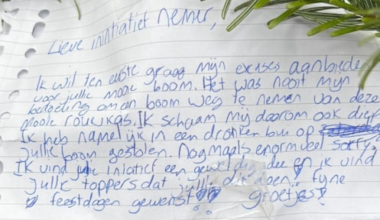 Lieve initiatief nemer,
Ik wil ten eerste graag mijn excuses aanbieden
voor jullie mooie boom. Het was nooit mijn
bedoeling om een boom weg te nemen van deze
mooie rouwkas. Ik schaam mij daarom ook diep
Ik heb namelijk in een dronken bui op
jullie boom gestolen. Nogmaals enormeel sorry.
Ik vind jullie iniatief een geweldig idee en ik vind
jullie toppers dat jullie dit doen! Fyne
feestdagen gewenst! Groetjes!